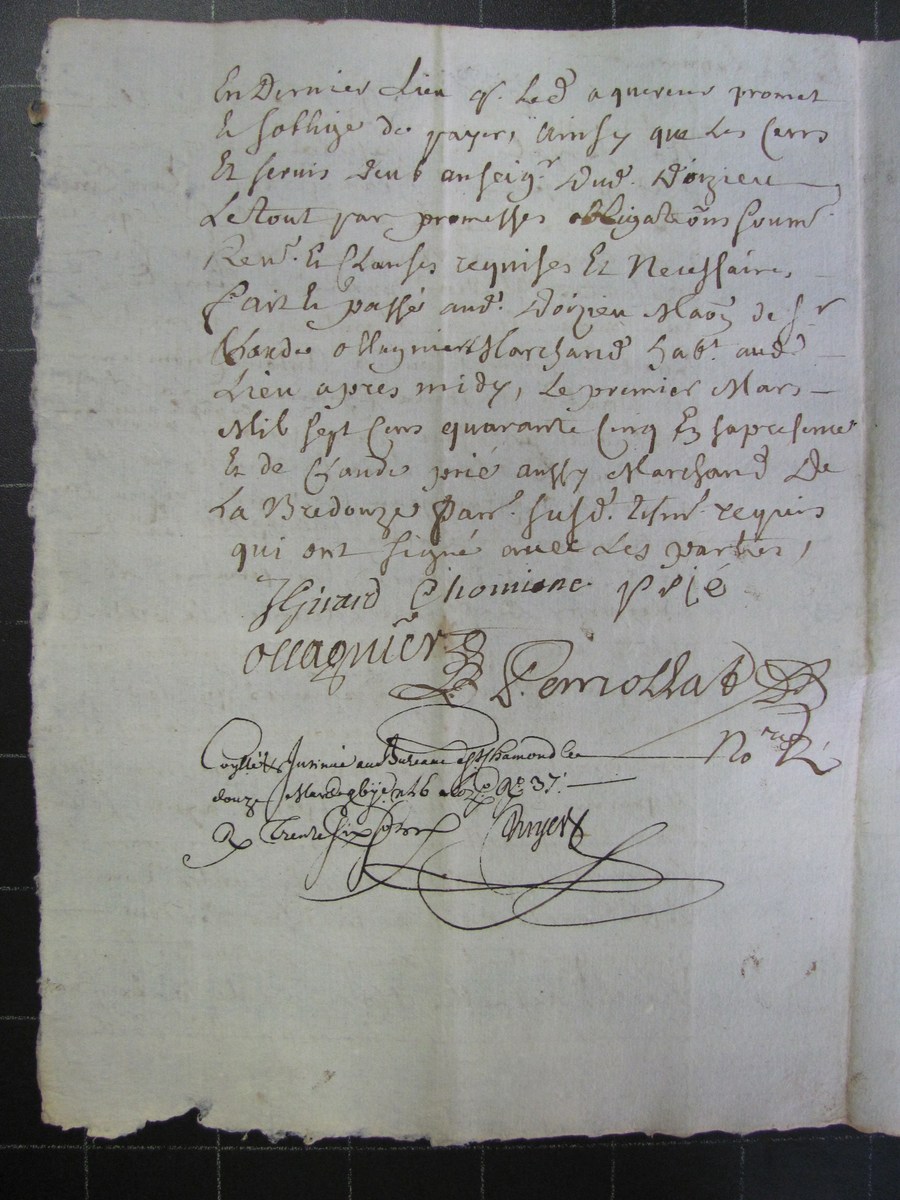 En Dernier Lieu q. Led aquereur promet
et sobblige de payer, Ainsy que Les Cens
Et servis deub auseigr. Dud. D'oizieu,
Le tout par promesses obligations soumr.
Renon. Et Clauses requises Et Necessaires
fait et passé aud. Doizieu Maon de sr
Claude ollagnier Marchand habt. aud
Lieu apres midy, Le premier Mars
Mil sept Cens quarante Cinq En sa presence
Et de Claude prié aussy Marchand De
La Bredouze parr. susd. tesm. requis
qui ont signé avec Les parties,
JGirard Chomiene prié
ollagniēr
Perriollat
Nore
Insinué au Bureau de St Chamond le
douze Mars fo No 37.
R Trente six